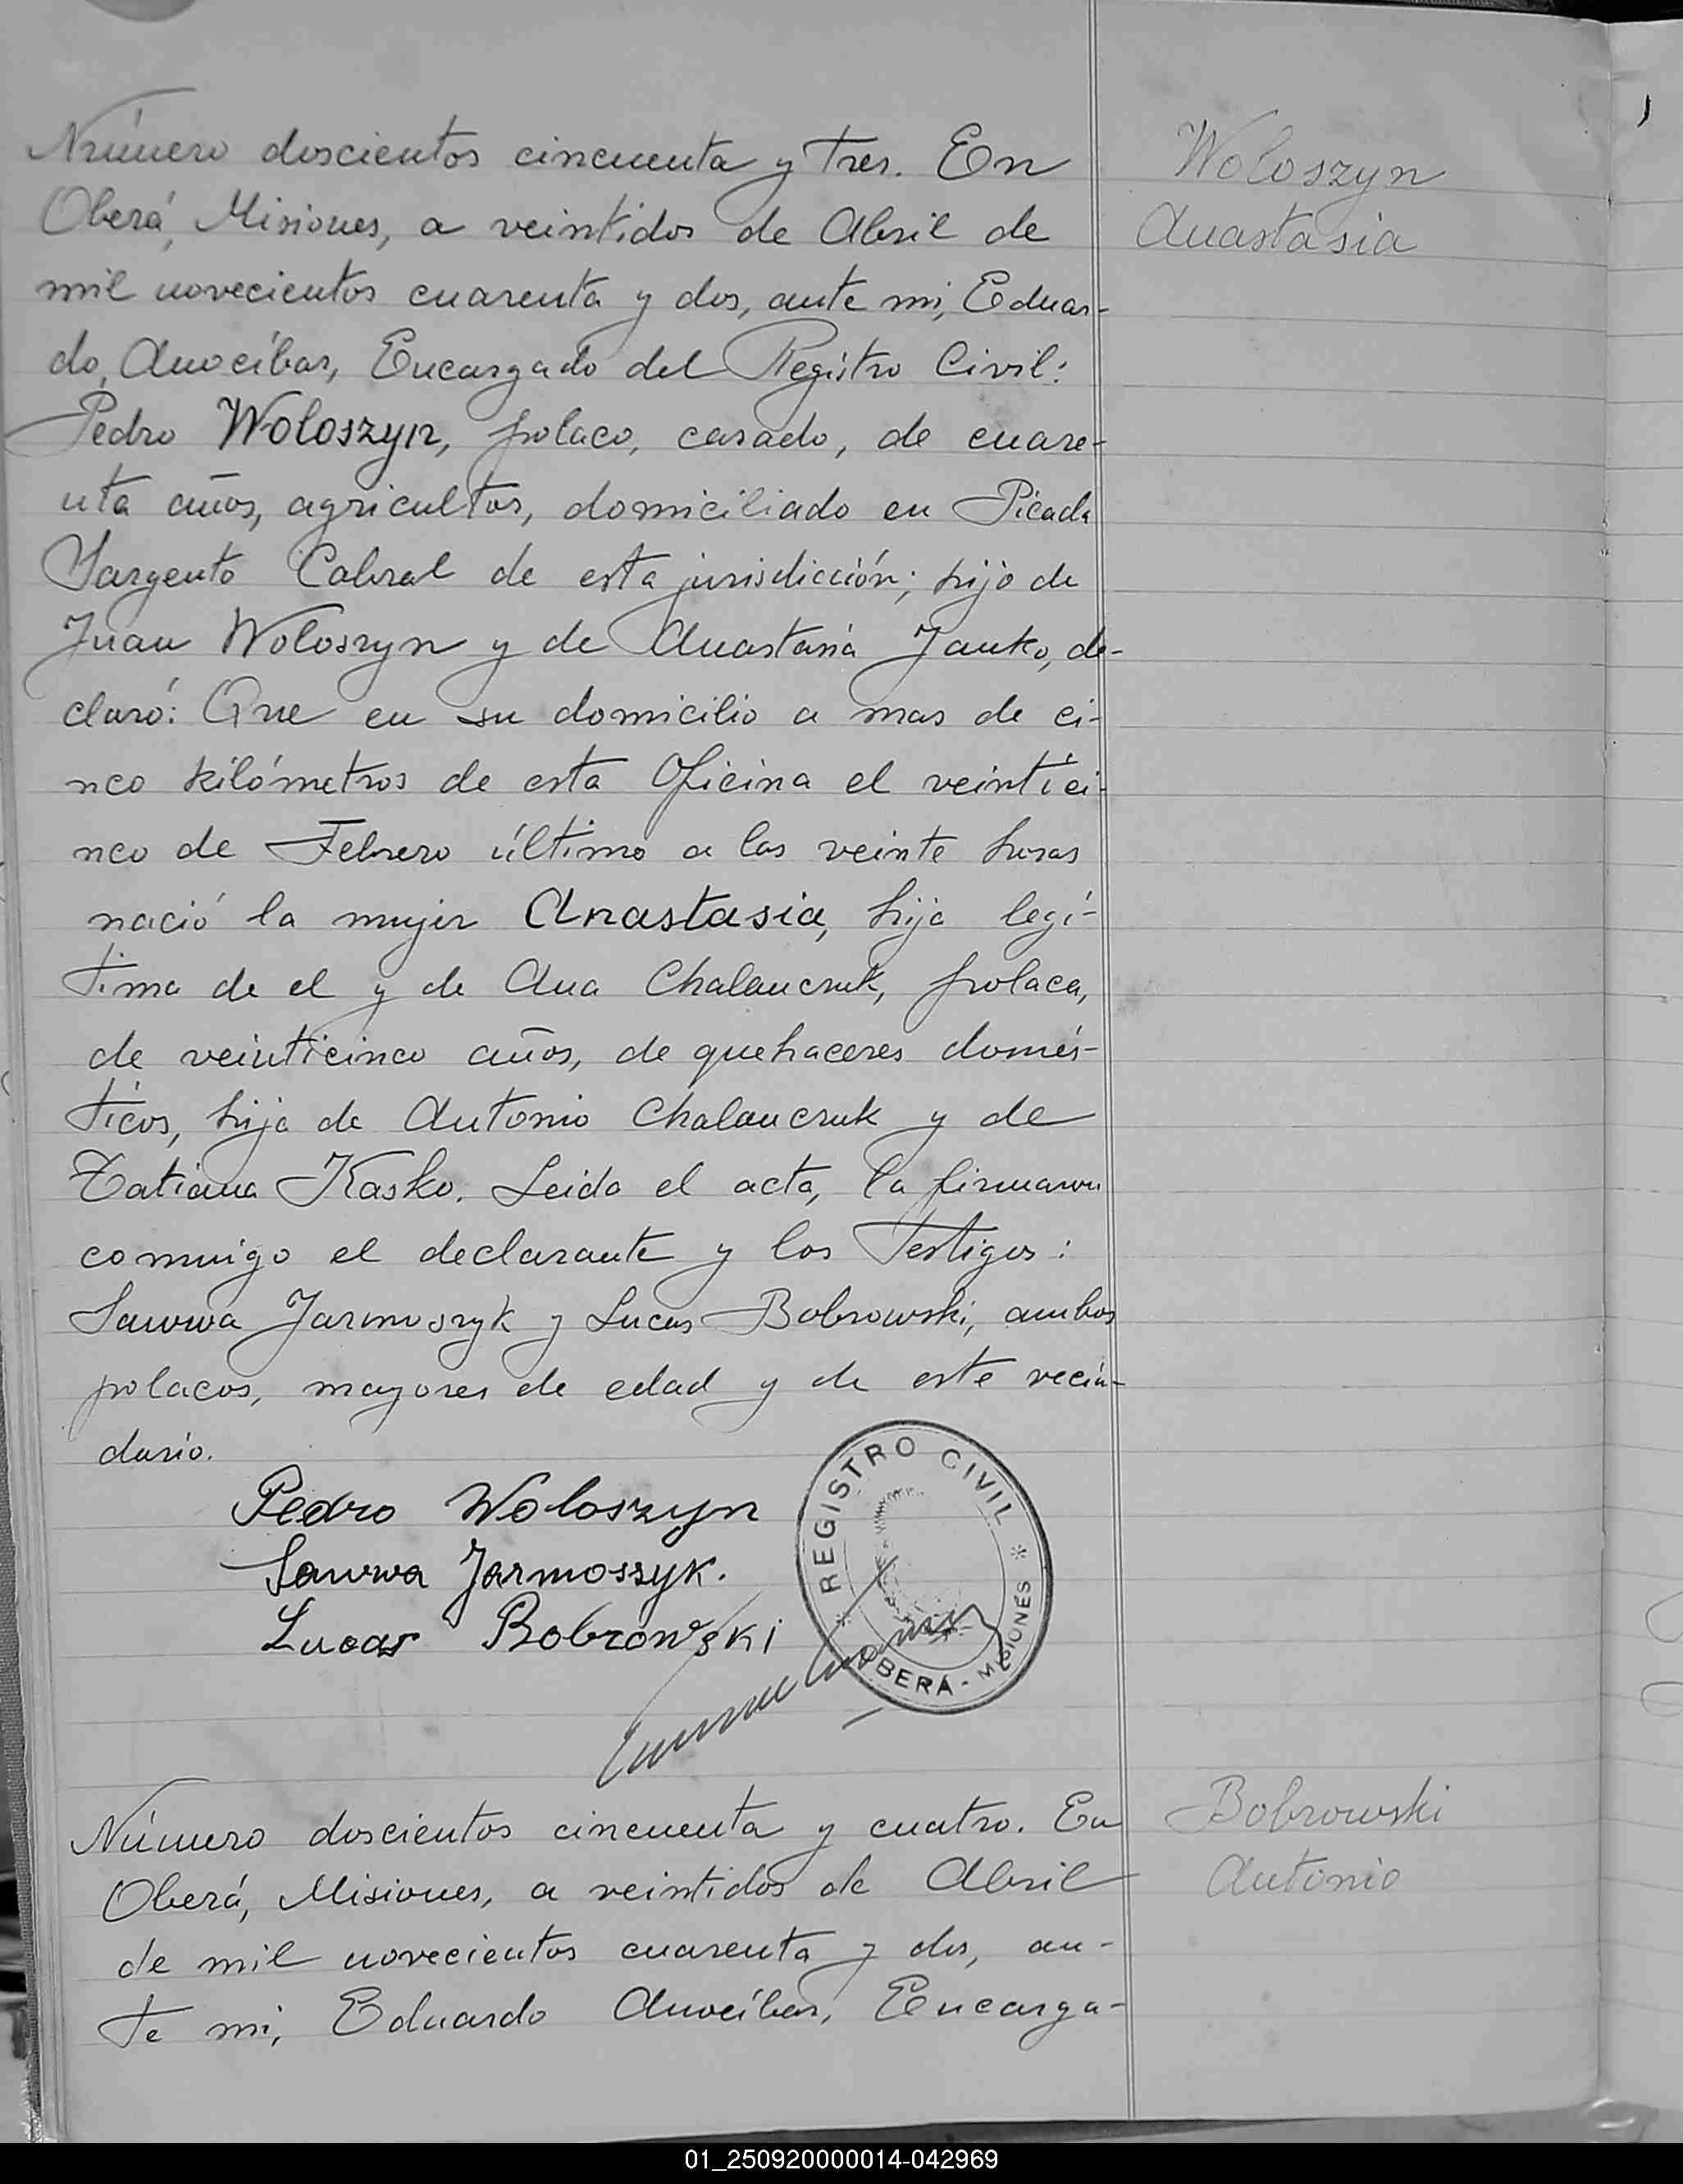 Número doscientos cincuenta y tres. En
Oberá, Misiones, a veintidos de Abril de
mil novecientos cuarenta y dos, ante mi, Eduar-
do Anocíbar, Encargado del Registro Civil:
Pedro Woloszyn, polaco, casado, de cuare-
nta años, agricultor, domiciliado en Picada
Sargento Cabral de esta jurisdicción; hijo de
Juan Woloszyn y de Anastasia Janko, de-
claró: Que en su domicilio a mas de ci-
nco kilómetros de esta Oficina el veintici-
nco de Febrero último a las veinte horas
nació la mujer Anastasia, hija legí-
tima de el y de Ana Chalanczuk, polaca,
de veinticinco años, de quehaceres domés-
ticos, hija de Antonio Chalanczuk y de
Tatiana Kasko. Leida el acta, la firmaron
conmigo el declarante y los testigos:
Sawwa Jarmoszyk y Lucas Bobrowski, ambos
polacos, mayores de edad y de este vecin-
dario.
Pedro Woloszyn
Sawwa Jarmoszyk.
Lucas Bobrowski
REGISTRO CIVIL
OBERÁ - MISIONES
Número doscientos cincuenta y cuatro. En
Oberá, Misiones, a veintidos de Abril
de mil novecientos cuarenta y dos, an-
te mi, Eduardo Anocíbar, Encarga-
Woloszyn
Anastasia
Bobrowski
Antonio
01_250920000014-042969